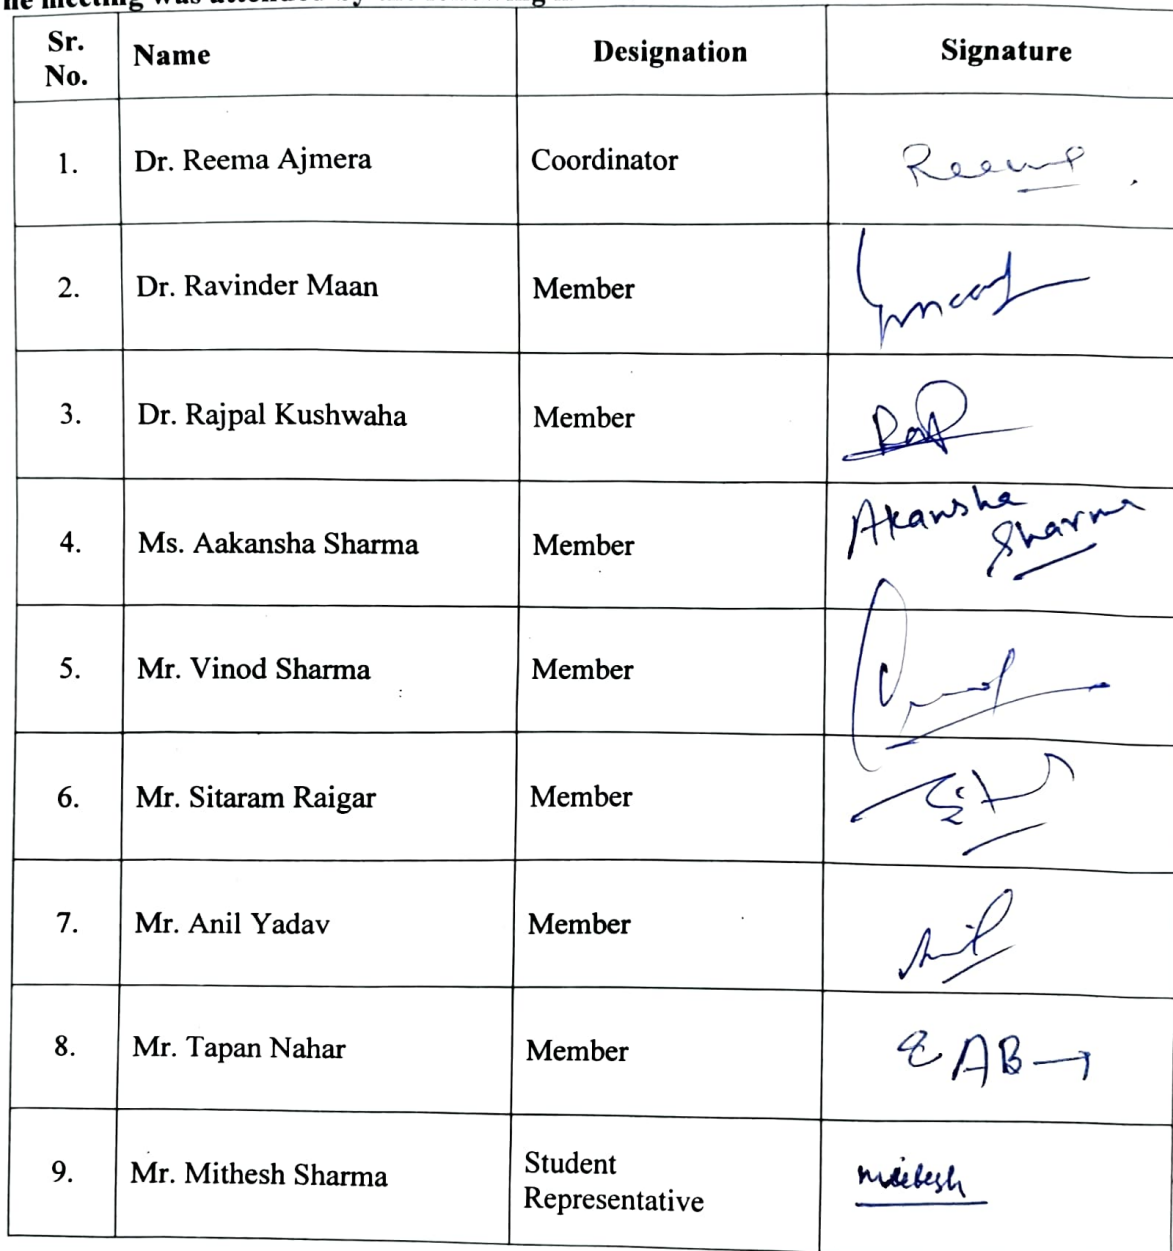 meeting was attended by the following
Sr. No. Name Designation Signature
1. Dr. Reema Ajmera Coordinator
2. Dr. Ravinder Maan Member
3. Dr. Rajpal Kushwaha Member
4. Ms. Aakansha Sharma Member Akansha Sharma
5. Mr. Vinod Sharma Member
6. Mr. Sitaram Raigar Member
7. Mr. Anil Yadav Member Anil
8. Mr. Tapan Nahar Member AB
9. Mr. Mithesh Sharma Student Representative